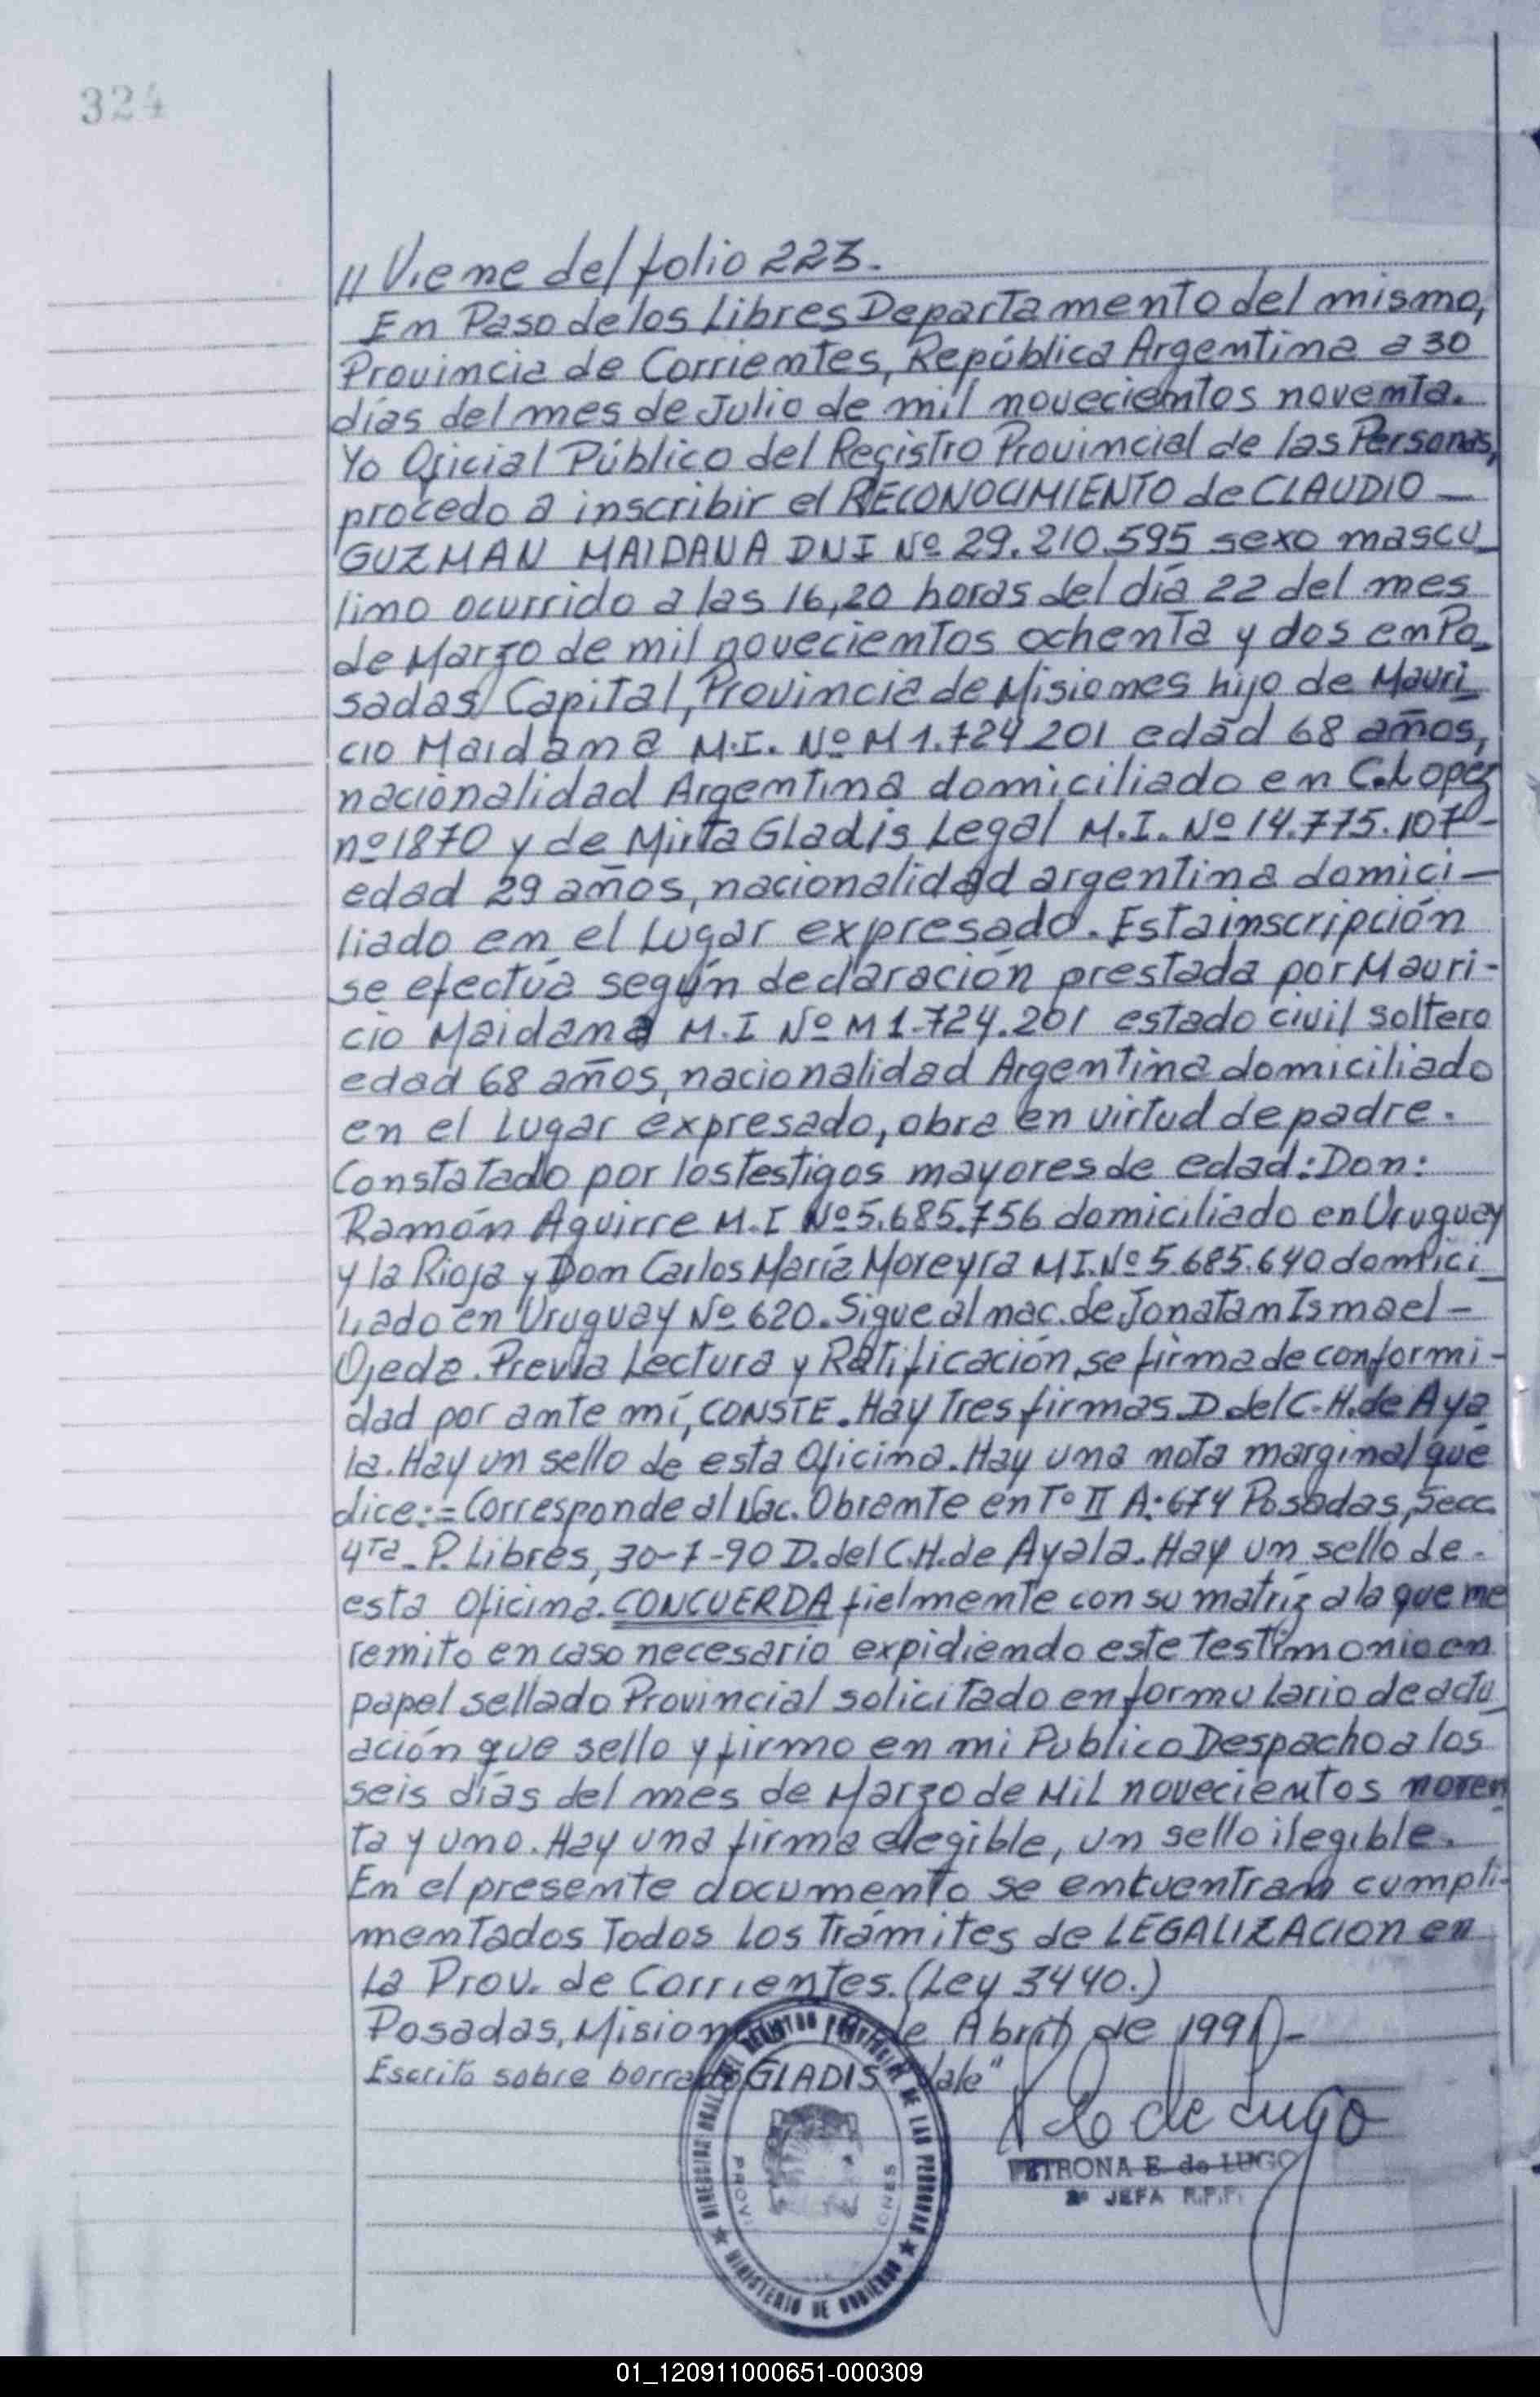 324
// Viene del folio 223.
En Paso de los Libres Departamento del mismo,
Provincia de Corrientes, República Argentina a 30
días del mes de Julio de mil novecientos noventa.
Yo Oficial Público del Registro Provincial de las Personas,
procedo a inscribir el RECONOCIMIENTO de CLAUDIO —
GUZMAN MAIDANA DNI Nº 29.210.595 sexo mascu_
lino ocurrido a las 16,20 horas del día 22 del mes
de Marzo de mil novecientos ochenta y dos en Po_
sadas, Capital, Provincia de Misiones hijo de Mauri_
cio Maidana M.I. Nº M 1.724.201 edad 68 años,
nacionalidad Argentina domiciliado en C. Lopez
nº 1870 y de Mirta Gladis Legal M.I. Nº 14.775.107 -
edad 29 años, nacionalidad argentina domici —
liado en el Lugar expresado. Esta inscripción
se efectúa según declaración prestada por Mauri -
cio Maidana M.I Nº M 1.724.201 estado civil soltero
edad 68 años, nacionalidad Argentina domiciliado
en el Lugar expresado, obra en virtud de padre.
Constatado por los testigos mayores de edad: Don:
Ramón Aguirre M.I Nº 5.685.756 domiciliado en Uruguay
y la Rioja y Don Carlos María Moreyra MI. Nº 5.685.640 domici_
liado en Uruguay Nº 620. Sigue al nac. de Jonatam Ismael -
Ojeda. Previa Lectura y Ratificación, se firma de conformi -
dad por ante mí, CONSTE. Hay tres firmas D. del C. H. de Aya
la. Hay un sello de esta Oficina. Hay una nota marginal que
dice: = Corresponde al Nac. Obrante en Tº II A: 674 Posadas, Secc.
4ta. P. Libres, 30-7-90 D. del C. H. de Ayala. Hay un sello de -
esta Oficina. CONCUERDA fielmente con su matríz a la que me
remito en caso necesario expidiendo este testimonio en
papel sellado Provincial solicitado en formulario de actu_
ación que sello y firmo en mi Publico Despacho a los
seis días del mes de Marzo de Mil novecientos noven
ta y uno. Hay una firma elegible, un sello ilegible.
En el presente documento se encuentran cumpli-
mentados todos los trámites de LEGALIZACION en
La Prov. de Corrientes. (Ley 3440.)
Posadas, Misiones de Abril de 1991 -
Escrito sobre borrado GLADIS "Vale"
DIRECCION GRAL. DEL REGISTRO PROVINCIAL DE LAS PERSONAS
MINISTERIO DE GOBIERNO
de Lugo
PETRONA E. de LUGO
2ª JEFA R.P.P.
01_120911000651-000309